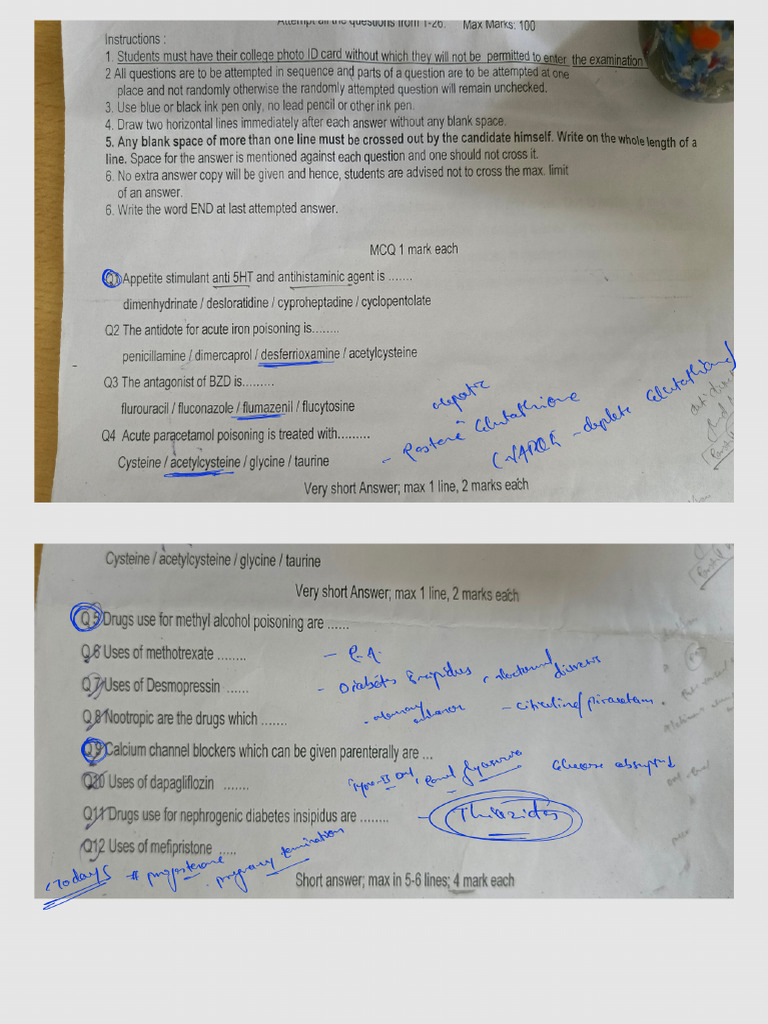 Attempt all the questions from 1-26. Max Marks: 100
Instructions :
1. Students must have their college photo ID card without which they will not be permitted to enter the examination
2 All questions are to be attempted in sequence and parts of a question are to be attempted at one
place and not randomly otherwise the randomly attempted question will remain unchecked.
3. Use blue or black ink pen only, no lead pencil or other ink pen.
4. Draw two horizontal lines immediately after each answer without any blank space.
5. Any blank space of more than one line must be crossed out by the candidate himself. Write on the whole length of a
line. Space for the answer is mentioned against each question and one should not cross it.
6. No extra answer copy will be given and hence, students are advised not to cross the max. limit
of an answer.
6. Write the word END at last attempted answer.
MCQ 1 mark each
Q1 Appetite stimulant anti 5HT and antihistaminic agent is .......
dimenhydrinate / desloratidine / cyproheptadine / cyclopentolate
Q2 The antidote for acute iron poisoning is........
penicillamine / dimercaprol / desferrioxamine / acetylcysteine
Q3 The antagonist of BZD is.........
flurouracil / fluconazole / flumazenil / flucytosine
Hepatic
Q4 Acute paracetamol poisoning is treated with.........
- Restore Glutathione
(NAPQI - deplete Glutathione)
Cysteine / acetylcysteine / glycine / taurine
Very short Answer; max 1 line, 2 marks each
Cysteine / acetylcysteine / glycine / taurine
Very short Answer; max 1 line, 2 marks each
Q 5 Drugs use for methyl alcohol poisoning are ......
Q.6 Uses of methotrexate ........ - R.A.
Q.7 Uses of Desmopressin ...... - Diabetes Insipidus, nocturnal diuresis
Q.8 Nootropic are the drugs which ....... - memory enhancer - citicoline/piracetam.
Q9 Calcium channel blockers which can be given parenterally are ...
Q20 Uses of dapagliflozin ....... Type-II DM, Renal glycosuria Glucose absorption
Q11 Drugs use for nephrogenic diabetes insipidus are ........ - Thiazides
Q12 Uses of mefipristone .....
<Today's # progesterone . pregnancy termination
Short answer; max in 5-6 lines; 4 mark each